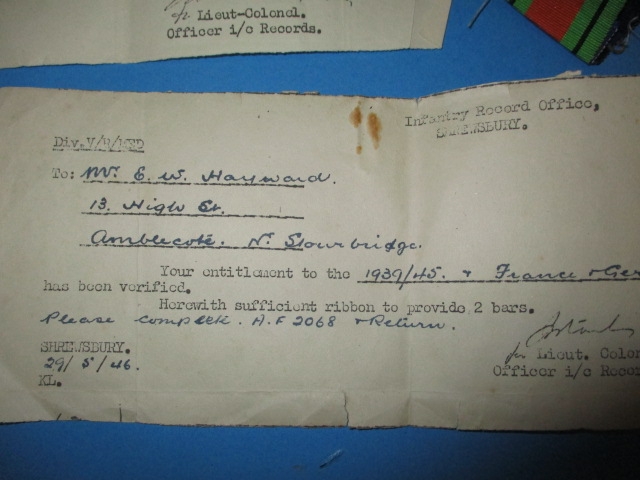 Lieut-Colonel.
Officer i/c Records.
Infantry Record Office,
SHREWSBURY.
Div.V/R/MED
To: Mr. E. W. Hayward.
13. High St.
Amblecote. Nr. Stourbridge.
Your entitlement to the 1939/45. + France + Ger
has been verified.
Herewith sufficient ribbon to provide 2 bars.
Please complete. A.F 2068 + Return.
SHREWSBURY.
29/5/46.
KL.
for Lieut. Colon
Officer i/c Recor